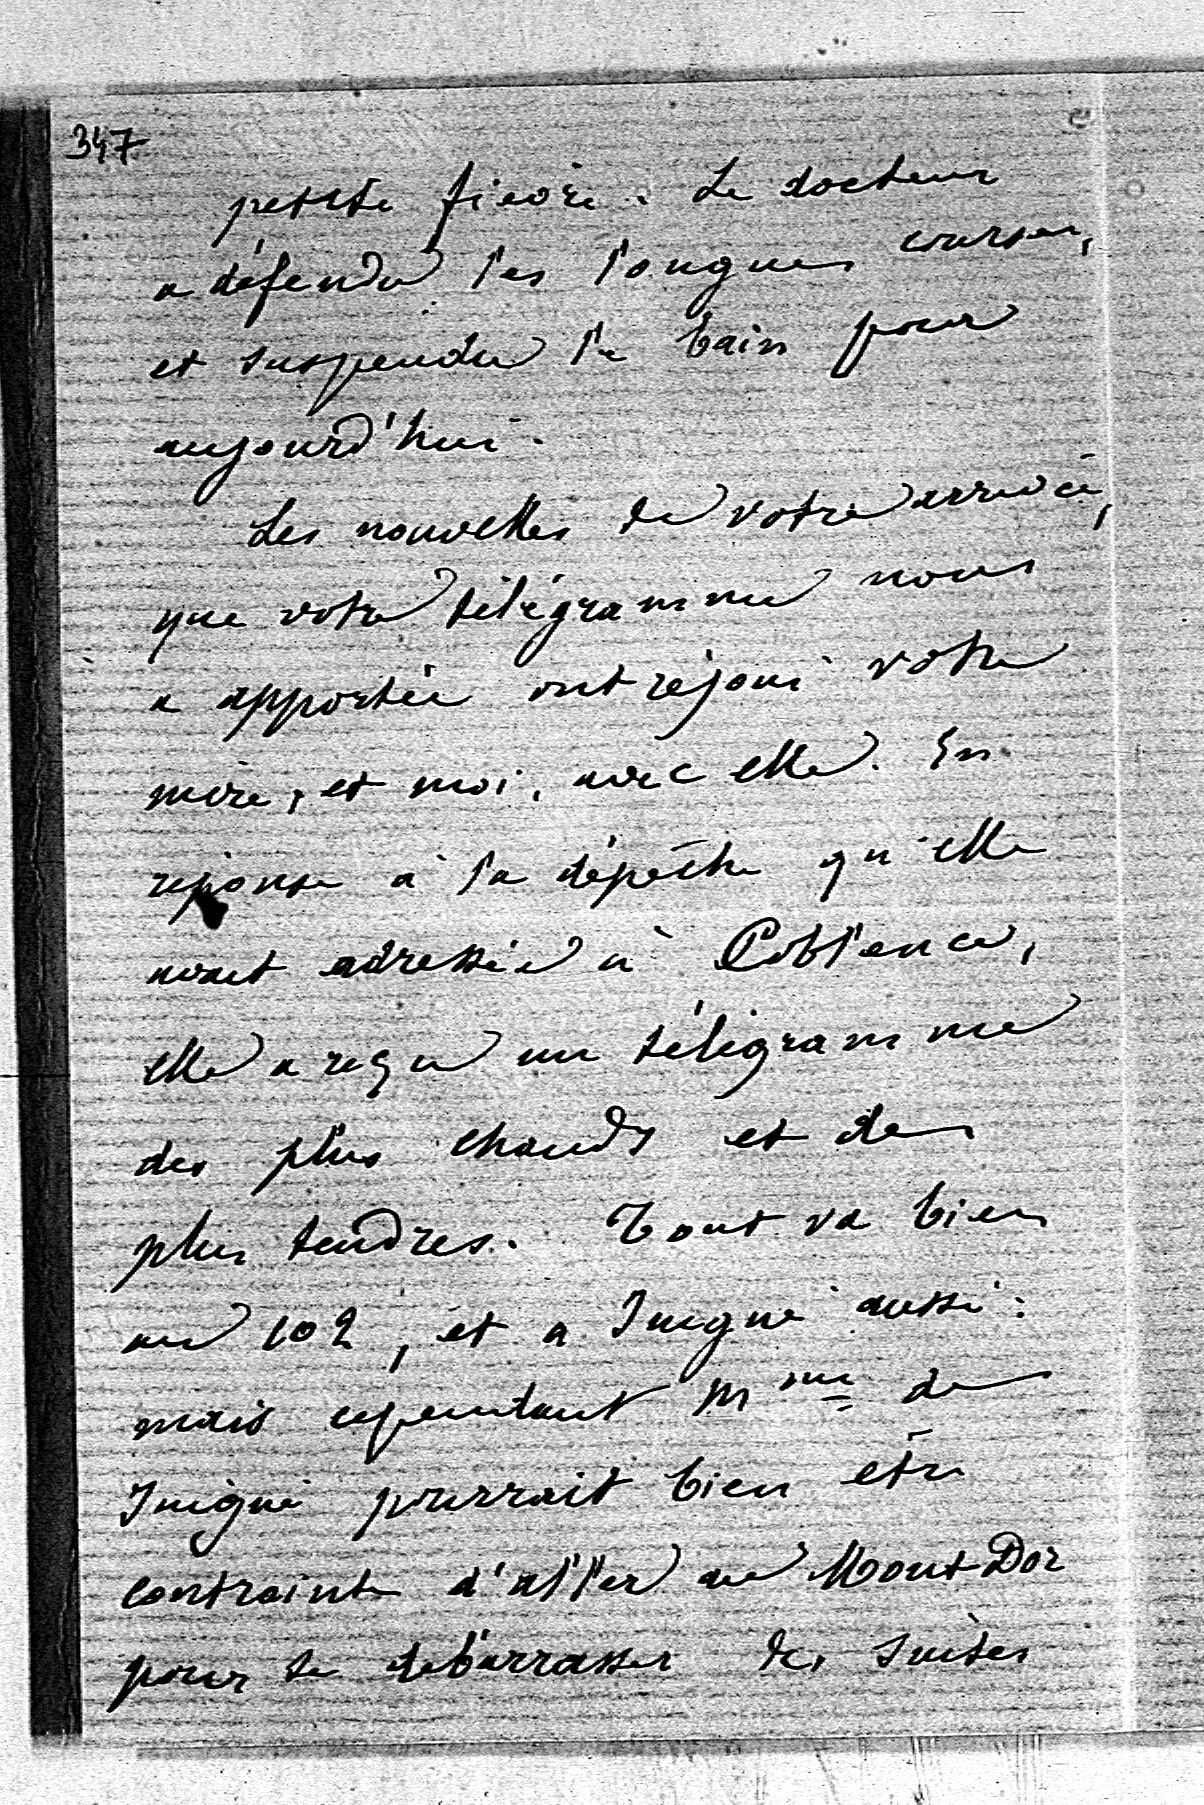 347
petite fièvre. Le docteur
a défendu les longues courses,
et suspendu le bain pour
aujourd'hui.
Les nouvelles de votre arrivée,
que votre télégramme nous
a apportée ont réjoui votre
mère, et moi, avec elle. En
réponse à la dépêche qu'elle
avait adressée à Coblence,
elle a reçu un télégramme
des plus chauds et des
plus tendres. Tout va bien
au 102, et a Juigné aussi:
mais cependant Mme de
Juigné pourrait bien être
contrainte d'aller au Mont Dor
pour se débarrasser des suites